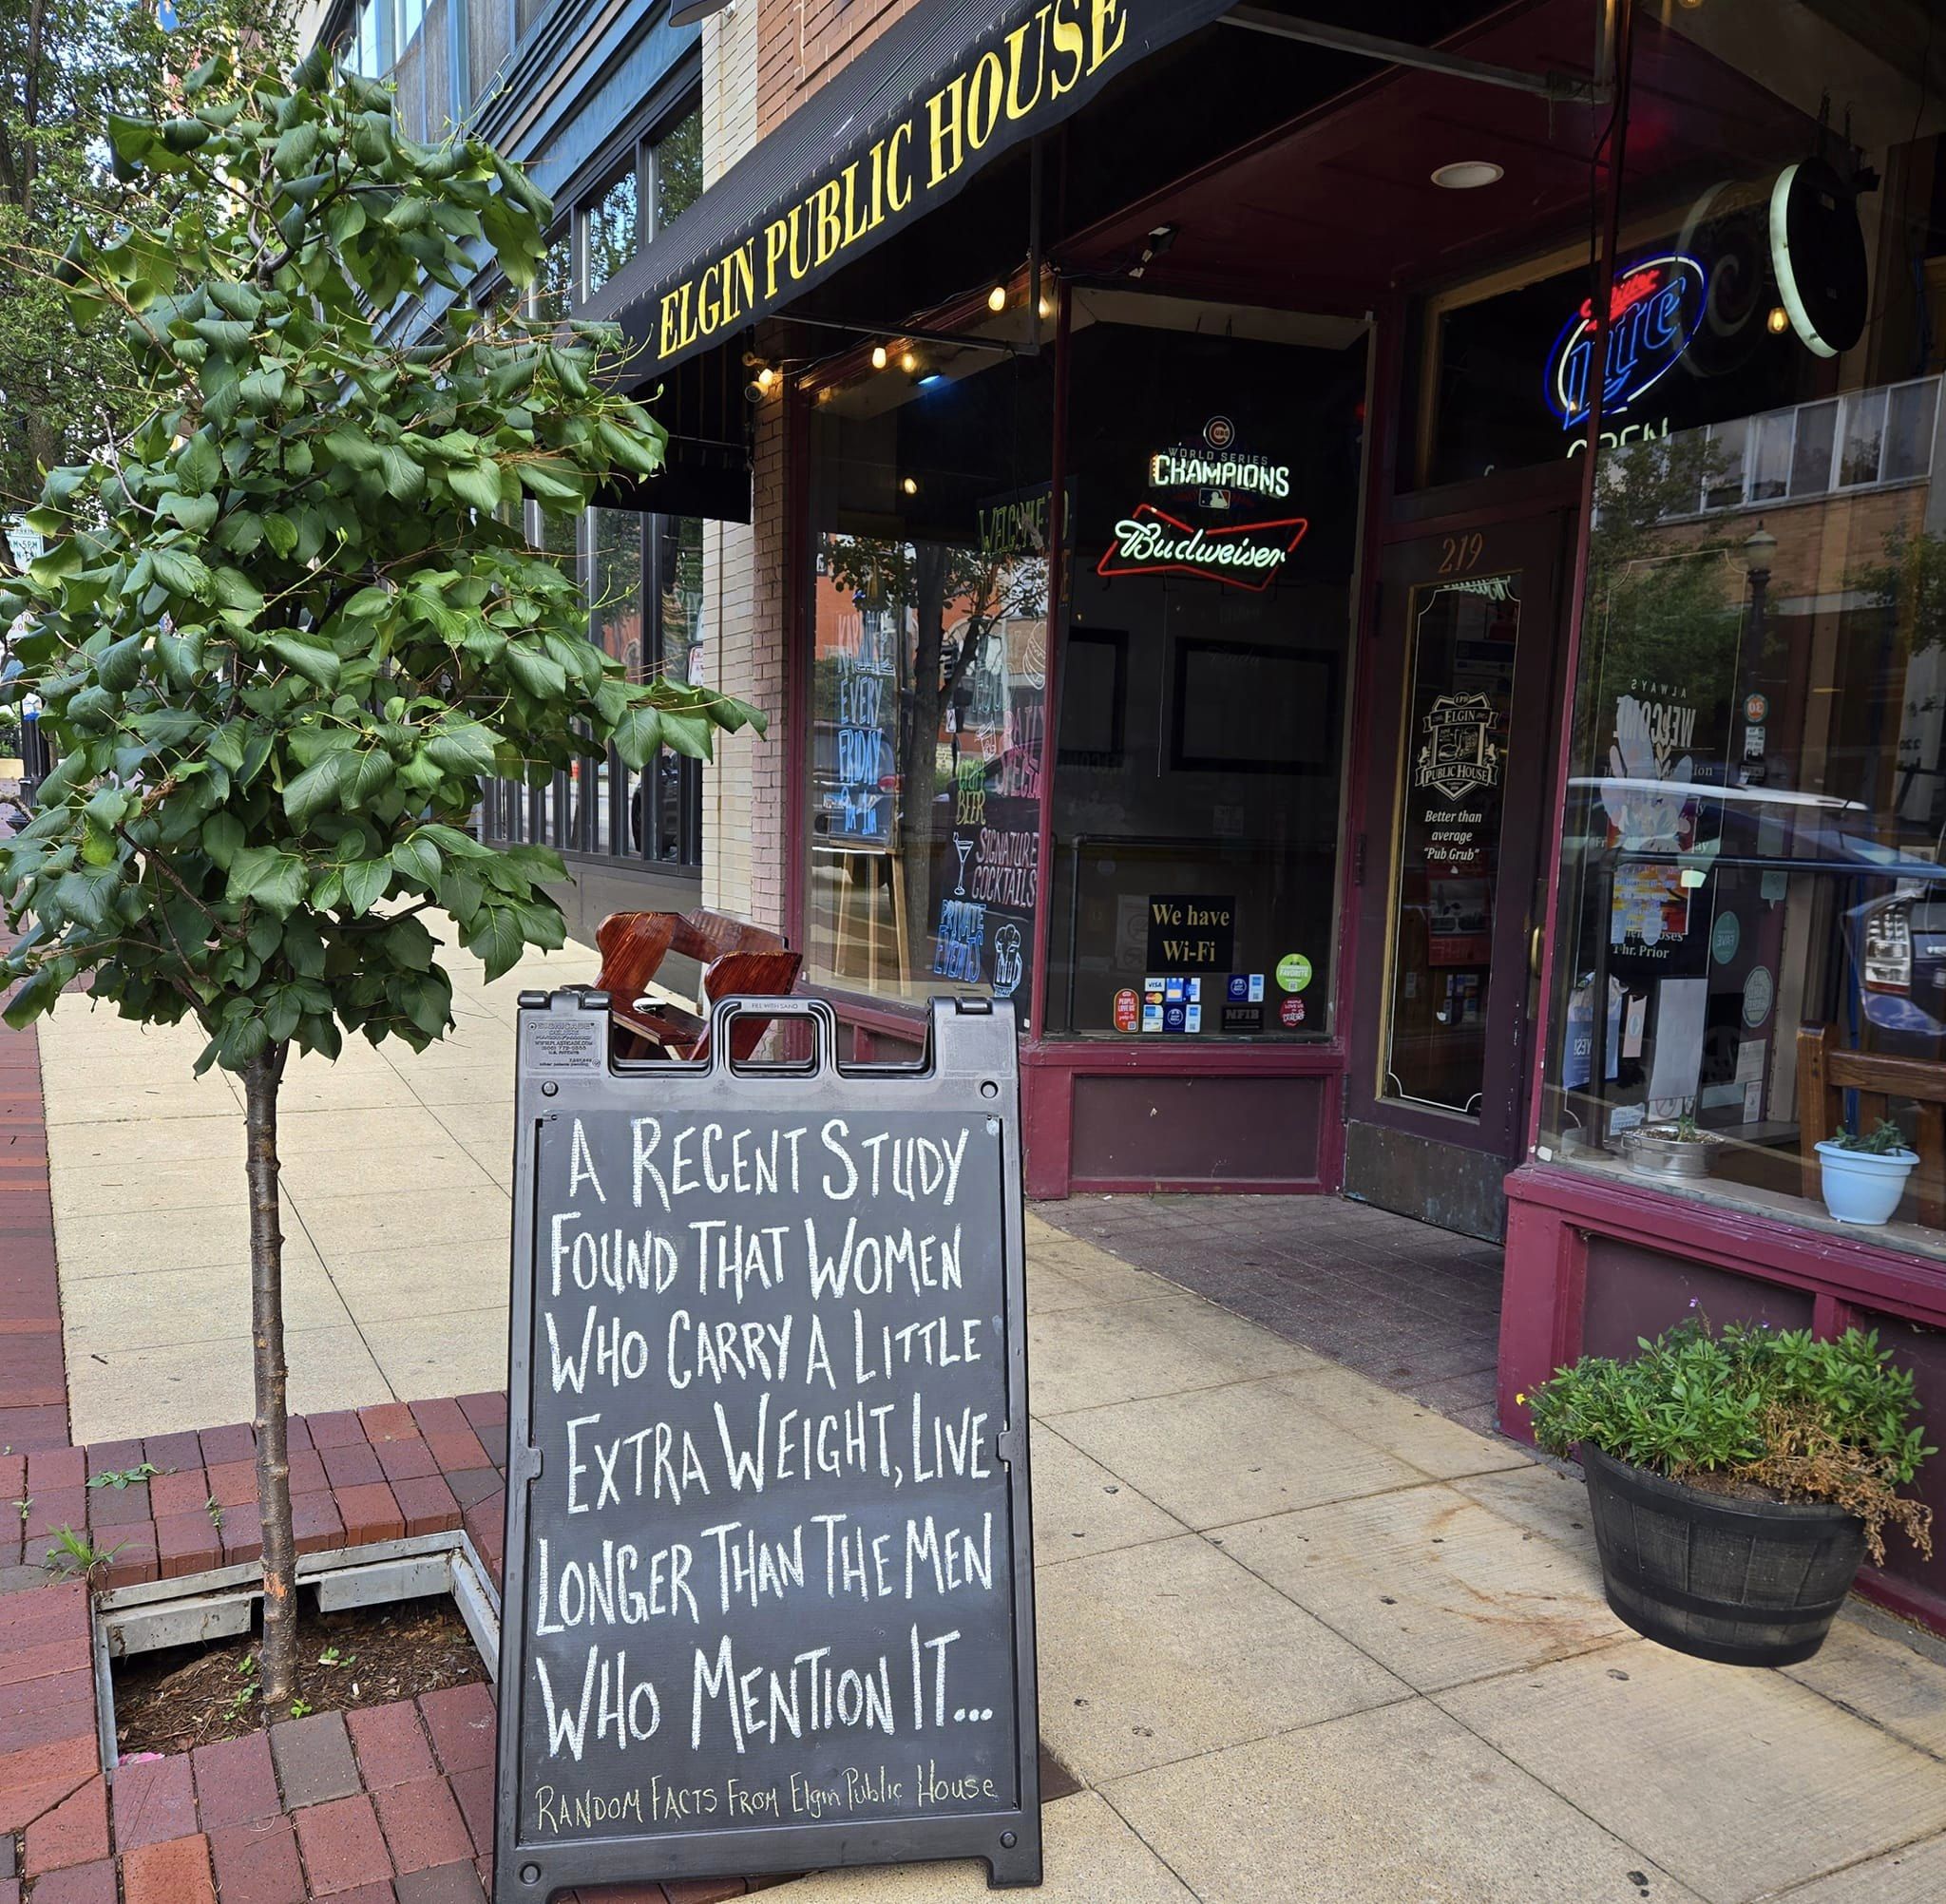 ELGIN PUBLIC HOUSE
Miller
Lite
OPEN
WORLD SERIES
CHAMPIONS
Budweiser
WELCOME TO
219
EVERY
FRIDAY
CRAFT
BEER
SIGNATURE
COCKTAILS
PRIVATE
EVENTS
ELGIN
PUBLIC HOUSE
Better than
average
"Pub Grub"
ALWAYS
WELCOME
We have
Wi-Fi
VISA
1 hr. Prior
FILL WITH SAND
A RECENT STUDY
FOUND THAT WOMEN
WHO CARRY A LITTLE
EXTRA WEIGHT, LIVE
LONGER THAN THE MEN
WHO MENTION IT...
RANDOM FACTS FROM Elgin Public House